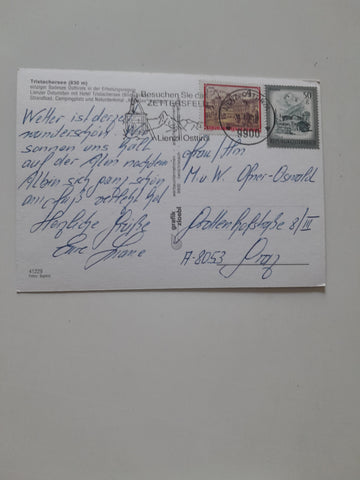 Tristachersee (830 m)
einziger Badesee Osttirols in der Erholungsregion
Lienzer Dolomiten mit Hotel Tristachersee
Strandbad, Campingplatz und Naturdenkmal
Besuchen Sie das
ZETTERSFELD
Lienz Osttirol
9900
Wetter ist derzeit
wunderschön. Wir
sonnen uns halt
auf der Alm nachdem
Albin sich ganz schön
am Fuß verletzt hat
Herzliche Grüße
Eure
Frau/Hrn
M. u. W. Ofner-Oswald
8/III
A-8053 Graz
grafik
zloebl
41229